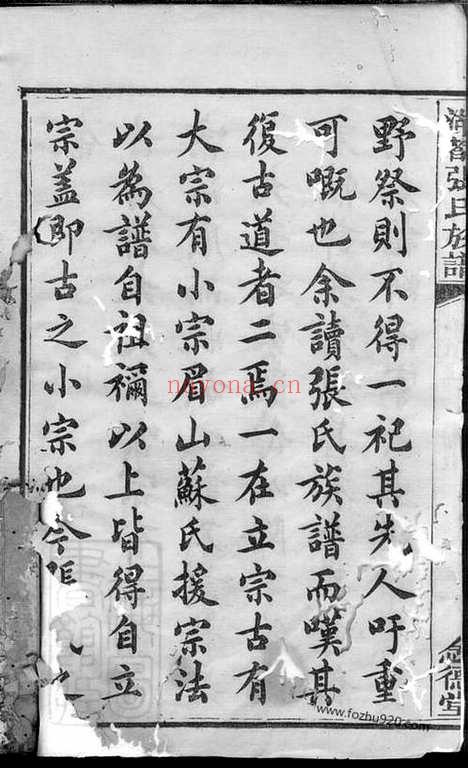 張氏族譜
野祭則不得一祀其先人吁重
可嘅也余讀張氏族譜而嘆其
復古道者二焉一在立宗古有
大宗有小宗眉山蘇氏援宗法
以為譜自祖禰以上皆得自立
宗蓋即古之小宗也今張之
德堂
nnyona.cn
www.fozhu920.com